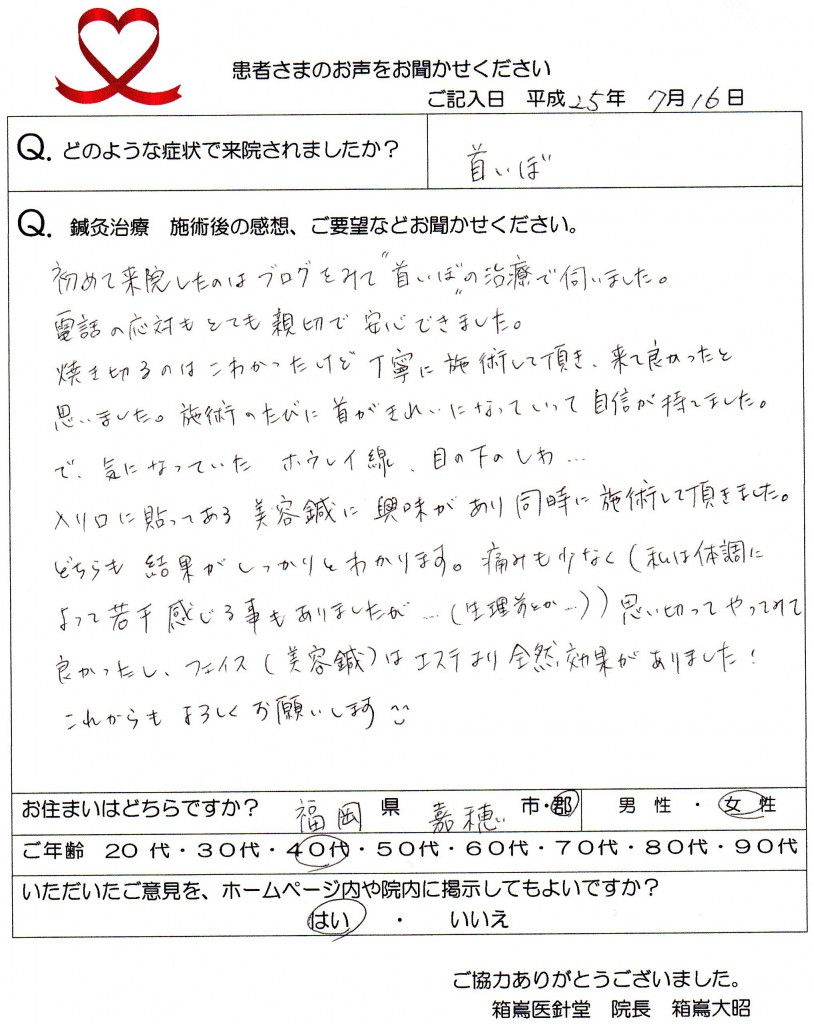 患者さまのお声をお聞かせください
ご記入日 平成25年 7月16日
Q. どのような症状で来院されましたか？
首いぼ
Q. 鍼灸治療 施術後の感想、ご要望などお聞かせください。
初めて来院したのはブログをみて"首いぼ"の治療で伺いました。
電話の応対もとても親切で安心できました。
焼き切るのはこわかったけど丁寧に施術して頂き、来て良かったと
思いました。施術のたびに首がきれいになっていって自信が持てました。
で、気になっていた ホウレイ線、目の下のしわ…
入り口に貼ってある美容鍼に興味があり同時に施術して頂きました。
どちらも結果がしっかりとわかります。痛みも少なく(私は体調に
よって若干感じる事もありましたが…(生理前とか…))思い切ってやってみて
良かったし、フェイス(美容鍼)はエステより全然効果がありました！
これからもよろしくお願いします
お住まいはどちらですか？ 福岡 県 嘉穂 市・郡 男性・女性
ご年齢 20代・30代・40代・50代・60代・70代・80代・90代
いただいたご意見を、ホームページ内や院内に掲示してもよいですか？
はい ・ いいえ
ご協力ありがとうございました。
箱嶌医針堂 院長 箱嶌大昭